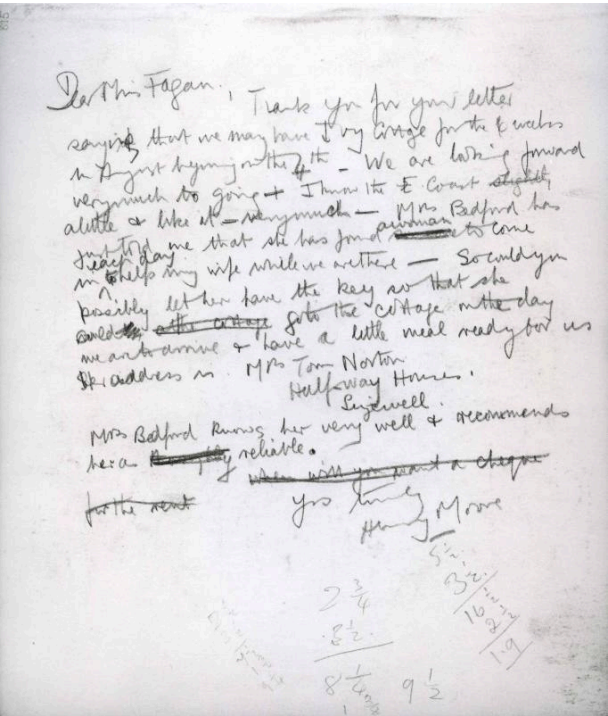 Dear Miss Fagan, Thank you for your letter
saying that we may have Ivy Cottage for the 2 weeks
in August beginning on the 4th – We are looking forward
very much to going + I know the E. Coast slightly
a little & like it – very much – Mrs Bedford has
just told me that she has found a woman to come
in each day to help my wife while we are there – So could you
possibly let her have the key so that she
could go to the cottage on the day
we are to arrive & have a little meal ready for us
Her address is Mrs Tom Norton
Halfway Houses.
Sizewell.
Mrs Bedford knows her very well & recommends
her as reliable.
when will you want a cheque
for the rent
Yrs truly
Henry Moore
2 3/4
3 1/2
8 1/4
9 1/2
5 1/2
3 1/2
16
2
1.9